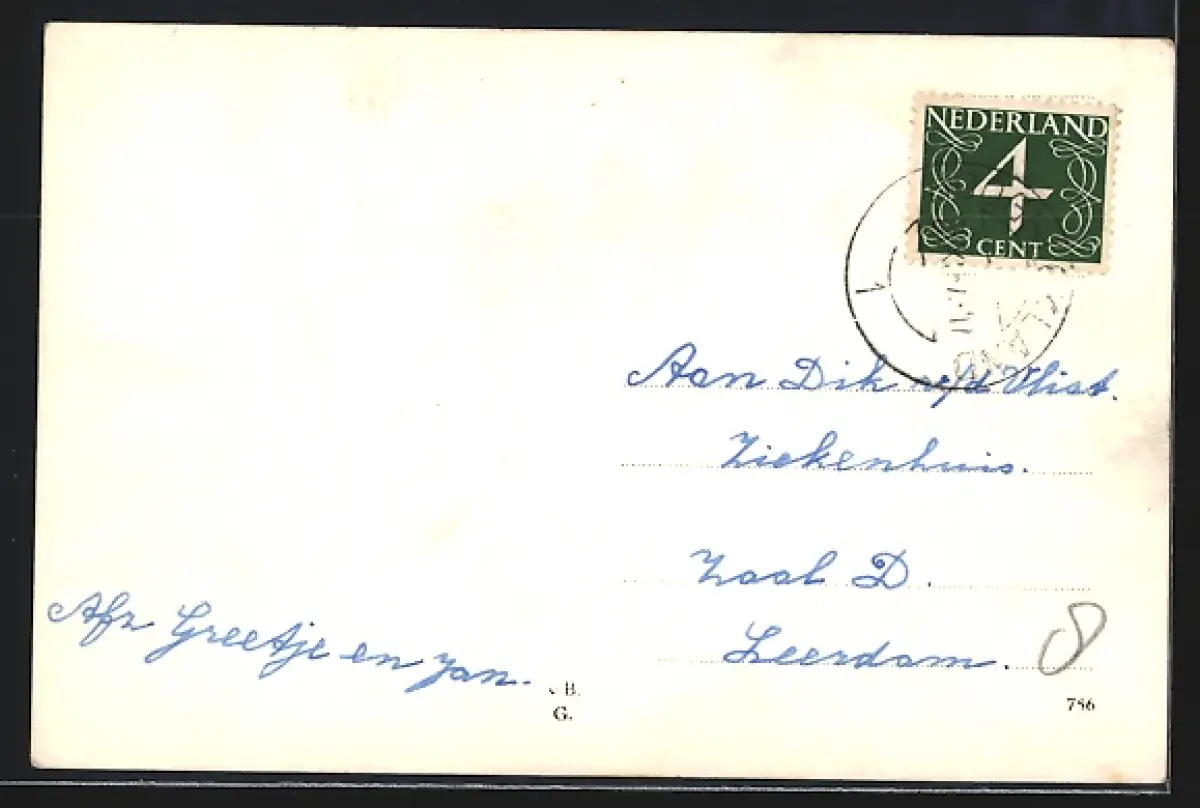 NEDERLAND
4
CENT
1
Aan Dik v/d Vlist.
Ziekenhuis.
Zaal D.
Leerdam.
8
Afz Greetje en Jan.
v B.
G.
786